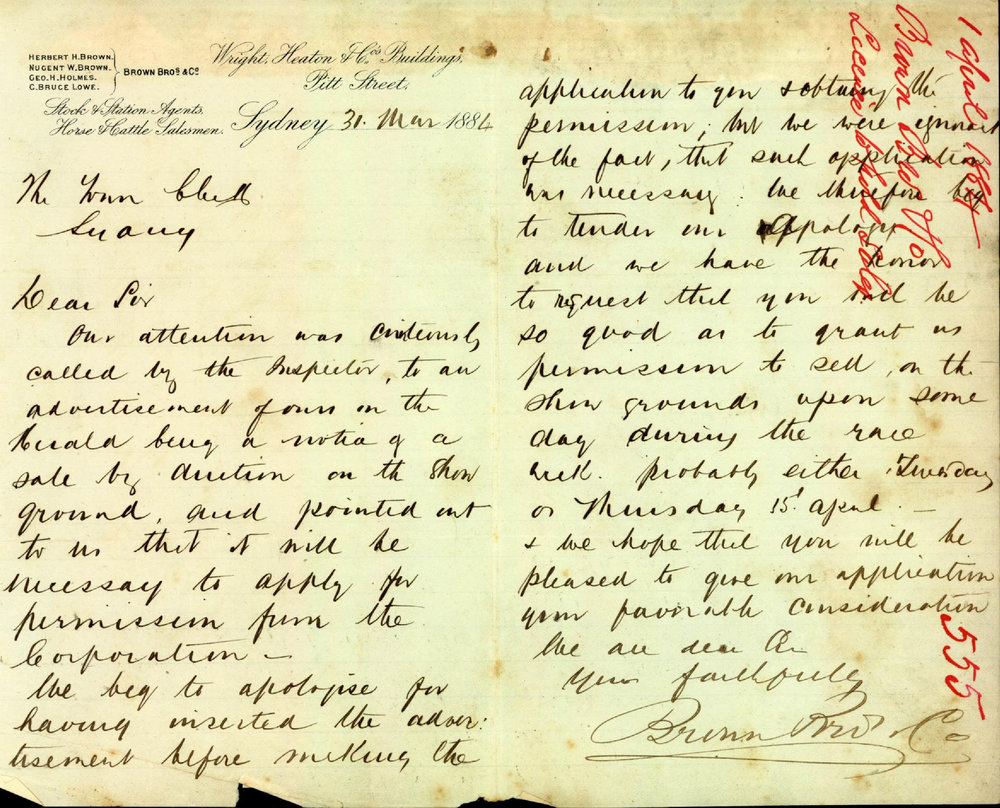 HERBERT H. BROWN.
NUGENT W. BROWN.
GEO. H. HOLMES.
C. BRUCE LOWE.
BROWN BROS. & CO.
Stock & Station Agents,
Horse & Cattle Salesmen.
Wright, Heaton & Co's Buildings,
Pitt Street,
Sydney 31. Mar 1884
The Town Clerk
Sydney
Dear Sir
Our attention was courteously
called by the Inspector, to an
advertisement of ours in the
Herald being a notice of a
sale by Auction on the Show
ground, and pointed out
to us that it will be
necessay to apply for
permission from the
Corporation —
We beg to apologise for
having inserted the adver:
tisement before making the
application to you & obtaining the
permission, but we were ignorant
of the fact, that such application
was necessary. We therefore beg
to tender our appology
and we have the honor
to request that you will be
so good as to grant us
permission to sell, on the
Show grounds upon some
day during the race
week. probably either Tuesday
or Thursday 15t april. —
& we hope that you will be
pleased to give our application
your favorable consideration
We are dear Sir
Yours faithfully
Brown Bros & Co
1 april 1884
Brown Bros & Co
License to hold Sales
555